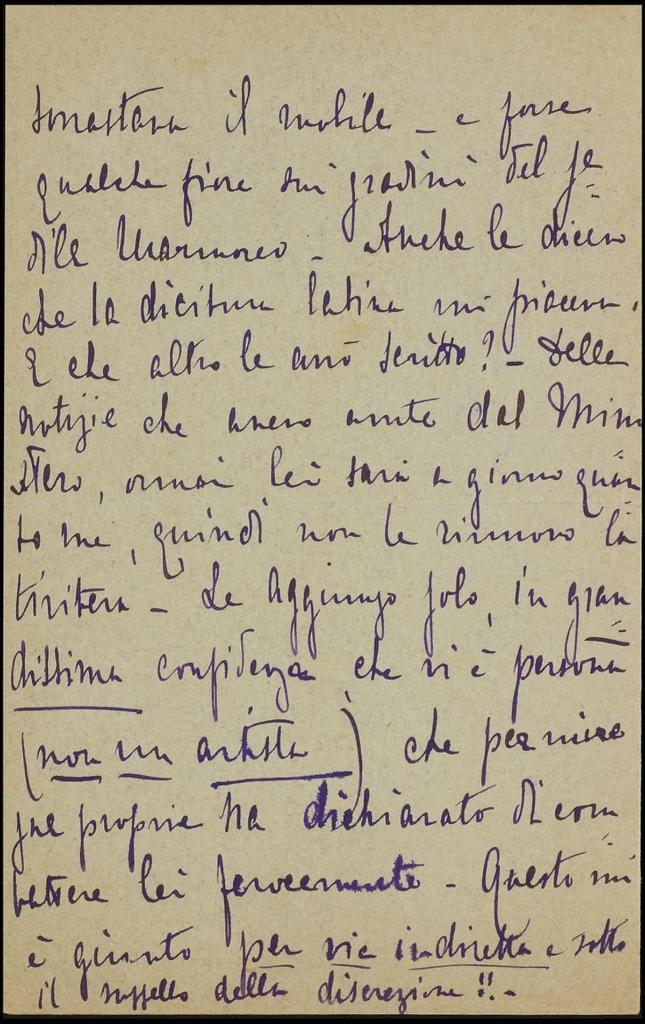 sovrastava il mobile - e forse
qualche fiore sui gradini del se=
dile Marmoreo - Anche le dicevo
che la dicitura latina mi piaceva.
E che altro le avrò scritto? - Delle
notizie che avevo avute dal Mini
stero, ormai lei sarà a giorno quan=
to me, quindi non le rinnovo la
tiritera - Le Aggiungo solo, in gran=
dissima confidenza che vi è persona
(non un artista) che per mire
sue proprie ha dichiarato di com
battere lei ferocemente - Questo mi
è giunto per vie indirette e sotto
il suggello della discrezione!!-